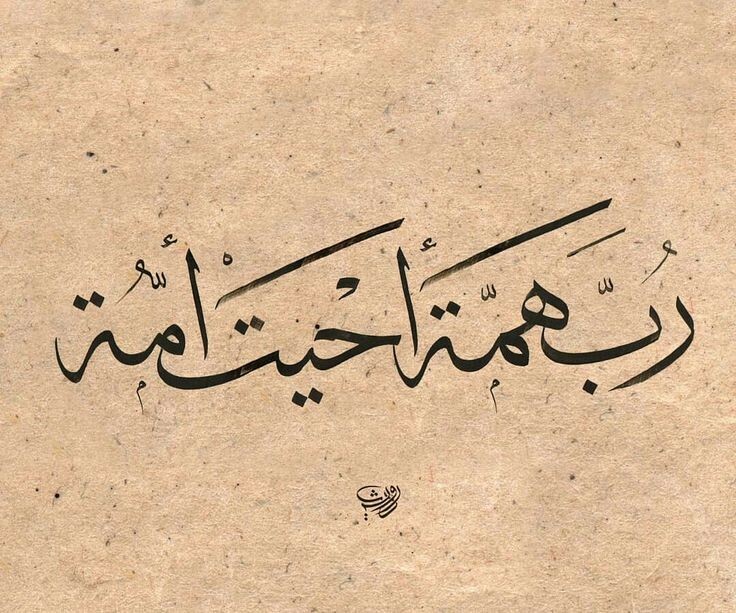 رُبَّ هِمَّة أَحْيَتْ أُمَّة